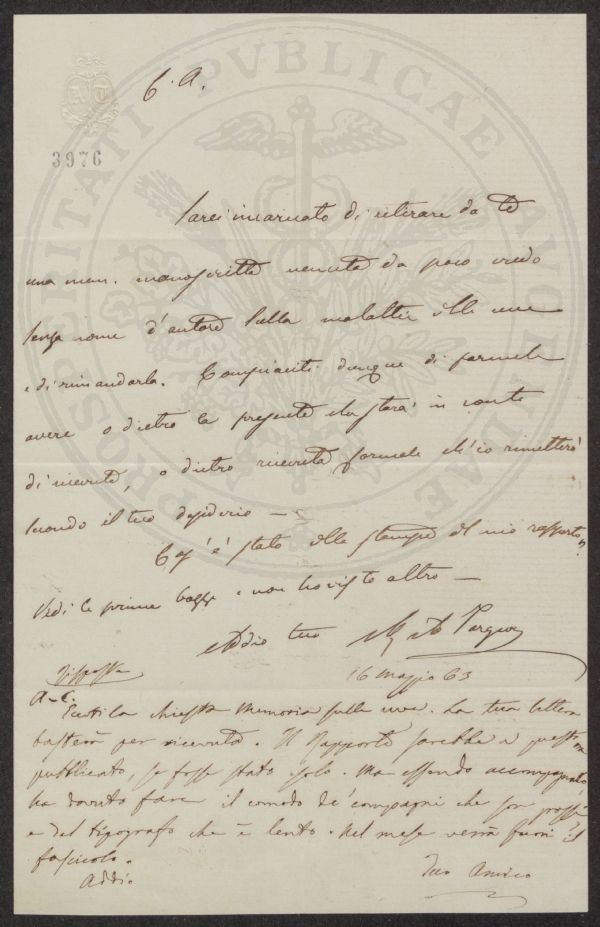 PROSPERITATI PVBLICAE AVGENDAE
C. A.
3976
Sarei incaricato di ritirare da Te
una mem. manoscritta venuta da poco credo
senza nome d'autore sulla malattia delle uve
e di rimandarla. Compiaciti dunque di farmela
avere o dietro la presente che starà in conto
di ricevuta, o dietro ricevuta formale ch'io rimetterò
secondo il tuo desiderio —
Cos'è stato della stampa del mio rapporto?
Vidi le prime bozze e non ho visto altro —
Addio tuo
16 Maggio 63
Risposta
A. C.
Eccoti la chiesta Memoria sulle uve. La tua lettera
basterà per ricevuta. Il Rapporto sarebbe a quest'ora
pubblicato, se fosse stato solo. Ma essendo accompagnato,
ha dovuto fare il comodo de' compagni che son grossi
e del tipografo che è lento. Nel mese verrà fuori il
fascicolo.
Addio
Tuo Amico